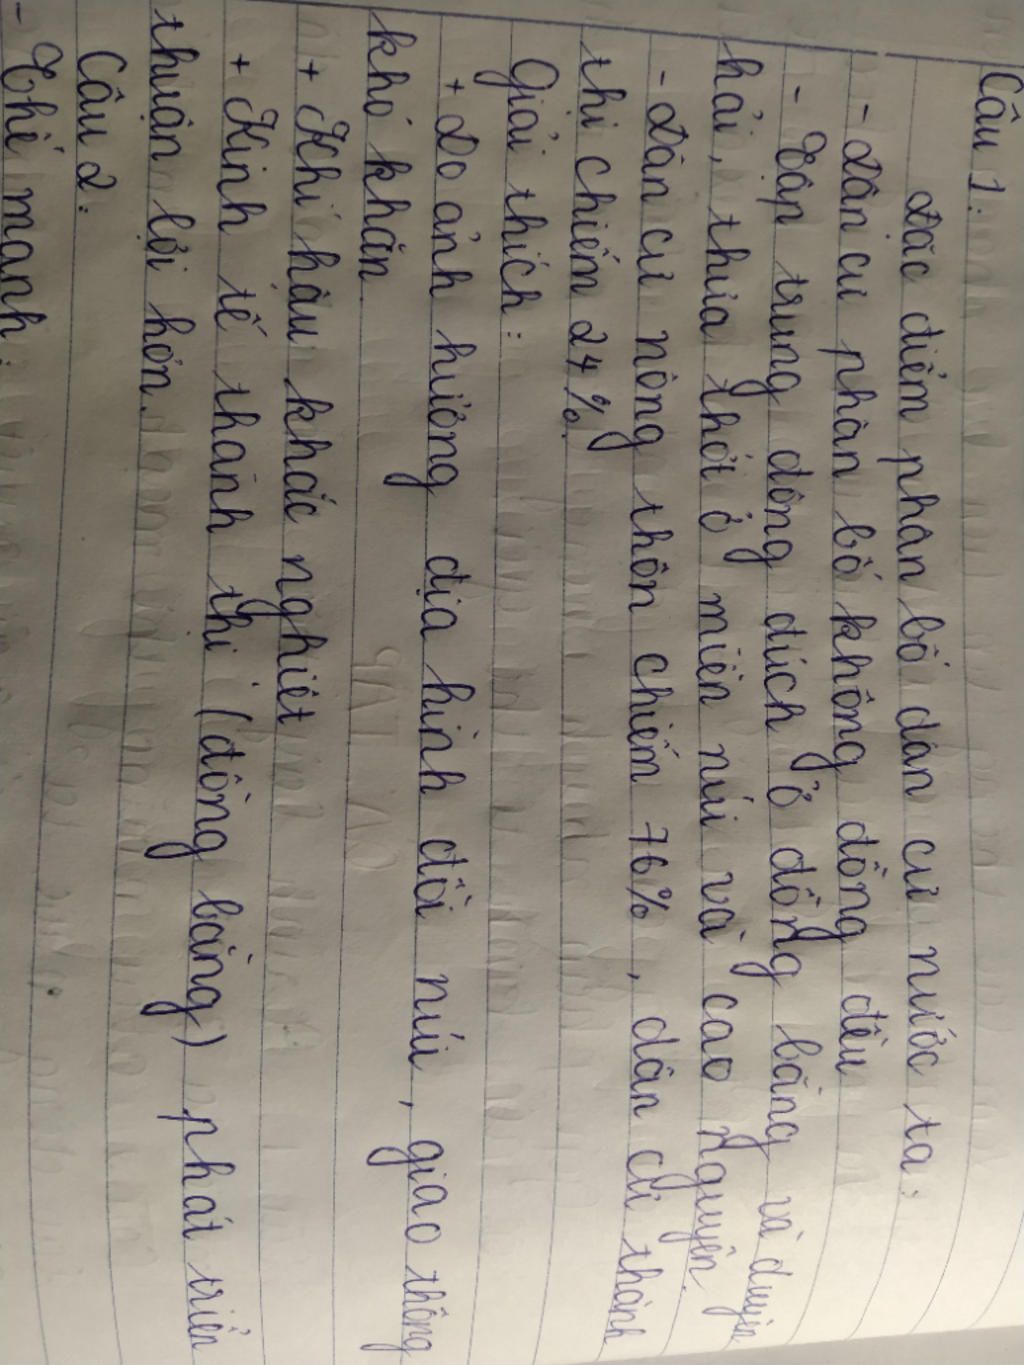 Câu 1:
Đặc điểm phân bố dân cư nước ta:
- Dân cư phân bố không đồng đều
- Tập trung đông đúch ở đồng bằng và duyên
hải, thưa thớt ở miền núi và cao nguyên.
- Dân cư nông thôn chiếm 76%, dân cư thành
thị chiếm 24%.
Giải thích:
+ Do ảnh hưởng địa hình đồi núi, giao thông
khó khăn.
+ Khí hậu khắc nghiệt
+ Kinh tế thành thị (đồng bằng) phát triển
thuận lợi hơn.
Câu 2:
- Thế mạnh: